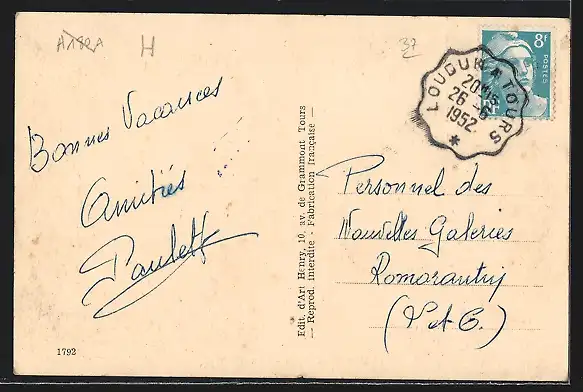 H
37
Bonnes Vacances
Amitiés
Paulette
1792
Edit. d'Art Henry, 10, av. de Grammont Tours
— Reprod. Interdite - Fabrication française —
LOUDUN A TOURS
20H15
26-6
1952
8F
POSTES
RF
Personnel des
Nouvelles Galeries
Romorantin
(L et C.)